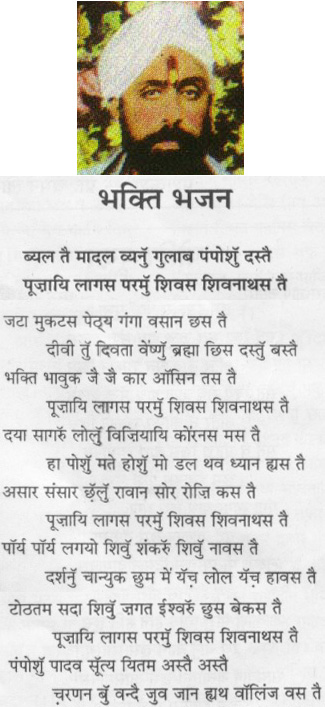 भक्ति भजन
ब्यल तै मादल व्यनुॅ गुलाब पंपोशुॅ दस्तै
पूज़ायि लागस परमुॅ शिवस शिवनाथस तै
जटा मुकटस पेठ्य गंगा वसान छस तै
दीवी तुॅ दिवता वेॅष्णुॅ ब्रह्मा छिस दस्तुॅ बस्तै
भक्ति भावुक जै जै कार ऑसिन तस तै
पूज़ायि लागस परमुॅ शिवस शिवनाथस तै
दया सागरुॅ लोलुॅ विज़ियायि कोॅरनस मस तै
हा पोशुॅ मते होशुॅ मो डल थव ध्यान ह्यस तै
असार संसार छ़ॅलुॅ रावान सोर रोज़ि कस तै
पूज़ायि लागस परमुॅ शिवस शिवनाथस तै
पॉर्य पॉर्य लगयो शिवुॅ शंकरुॅ शिवुॅ नावस तै
दर्शनुॅ चान्युक छुम मेॅ यॅच़ लोल यॅच़ हावस तै
टोठतम सदा शिवुॅ ज़गत ईश्वरुॅ छुस बेकस तै
पूज़ायि लागस परमुॅ शिवस शिवनाथस तै
पंपोशुॅ पादव सूॅत्य यितम अस्तै अस्तै
च़रणन बुॅ वन्दै जुव जान ह्यथ वॉलिंज वस तै